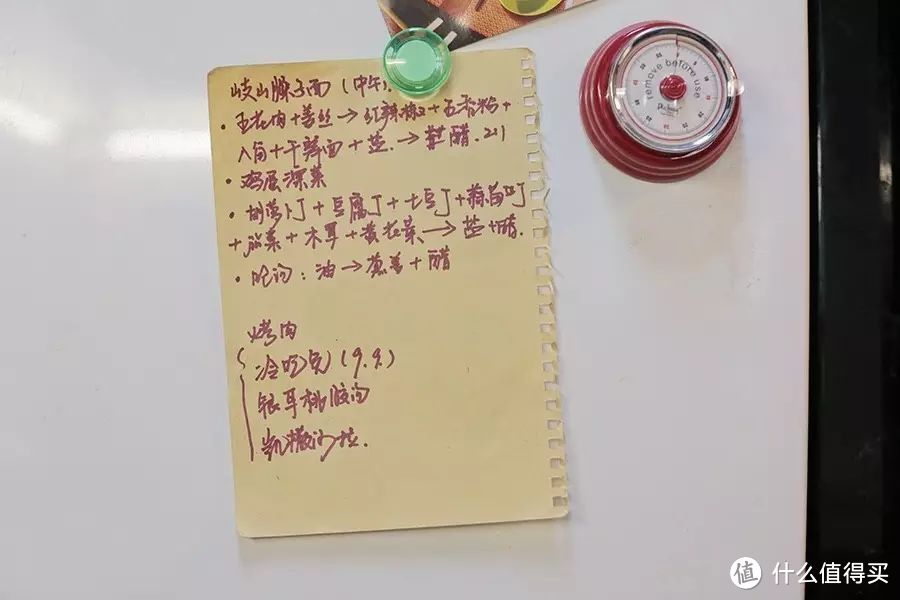 岐山臊子面（中午）.
• 五花肉+姜丝→红辣椒+五香粉+
八角+干辣面+盐.→盐醋.
• 鸡蛋
• 胡萝卜丁+豆腐丁+土豆丁+蒜苗丁
+菜+木耳+黄花菜→盐+醋.
• 汤：油→葱姜+醋
烤肉
冷吃兔（9.9.）
银耳桃胶汤
凯撒沙拉.
remove before use
值 什么值得买